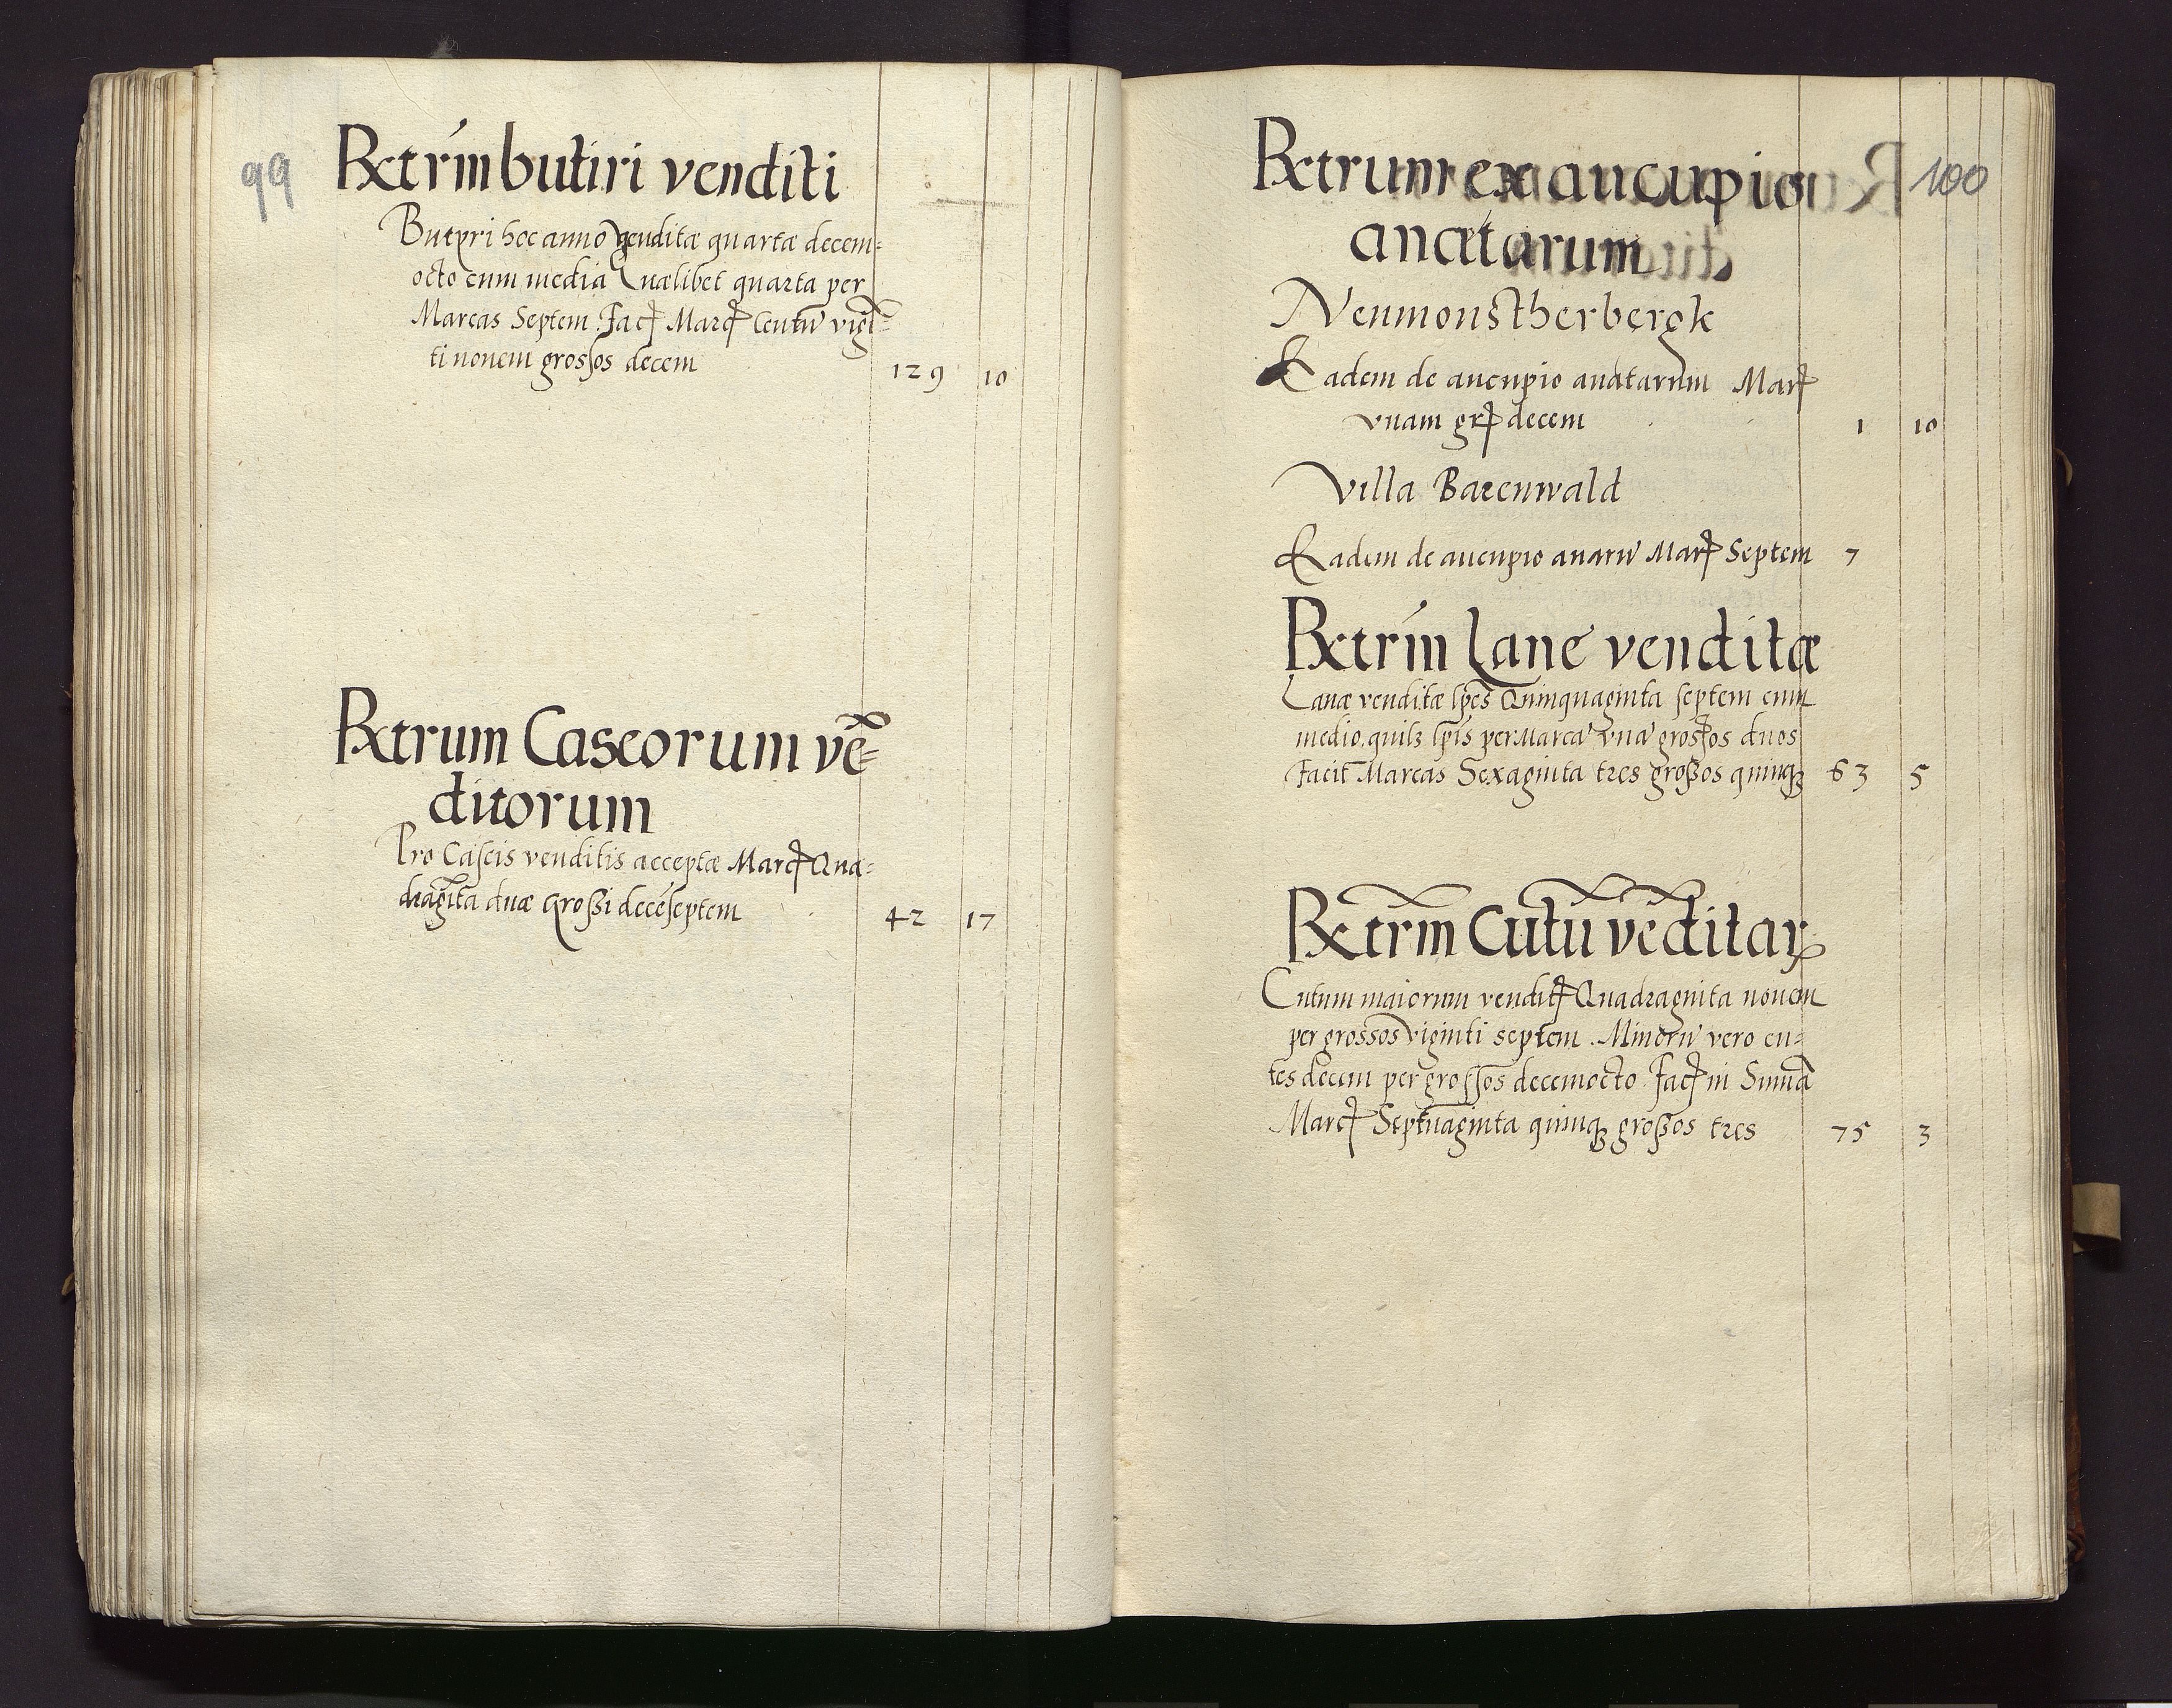 99
Rxtrm butiri venditi
Butyri hoc anno venditæ quartæ decem=
octo cum media Quælibet quarta per
Marcas Septem. Fact Marc Centu vigi=
ti novem grossos decem 129 10
Rxtrum Caseorum vē=
ditorum
Pro Caseis venditis acceptæ Marc Qua=
dragīta duæ Großi decēseptem 42 17
100
Rxtrum ex aucupio
anatarum
Neumonstherbergk
Eadem de aucupio anatarum Mar
vnam gr decem 1 10
Villa Barenwald
Eadem de aucupio anatū Mar Septem 7
Rxtrm Lane venditæ
Lanæ venditæ lpes Quinquaginta septem cum
medio, quilz lpis per Marcā vnā grossos duos
Facit Marcas Sexaginta tres großos quinq 63 5
Rxtrm Cutiū vēditar
Cutum maiorum vendit Quadraginta novem
per grossos viginti septem. Minorū vero cu=
tes decem per grossos decemocto. Fact in Sumā
Marc Septuaginta quinq großos tres 75 3